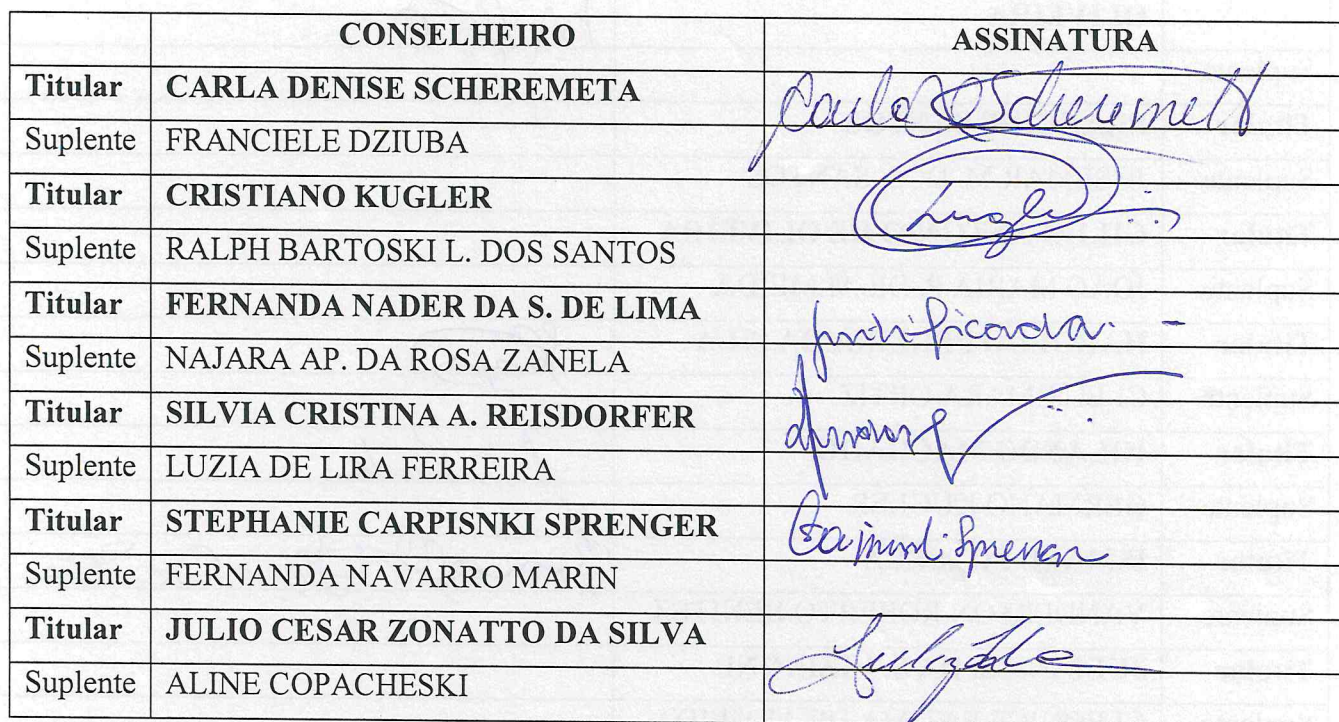 CONSELHEIRO ASSINATURA
Titular CARLA DENISE SCHEREMETA Carla D Scheremeta
Suplente FRANCIELE DZIUBA
Titular CRISTIANO KUGLER Kugler
Suplente RALPH BARTOSKI L. DOS SANTOS
Titular FERNANDA NADER DA S. DE LIMA justificada. -
Suplente NAJARA AP. DA ROSA ZANELA
Titular SILVIA CRISTINA A. REISDORFER
Suplente LUZIA DE LIRA FERREIRA
Titular STEPHANIE CARPISNKI SPRENGER
Suplente FERNANDA NAVARRO MARIN
Titular JULIO CESAR ZONATTO DA SILVA
Suplente ALINE COPACHESKI